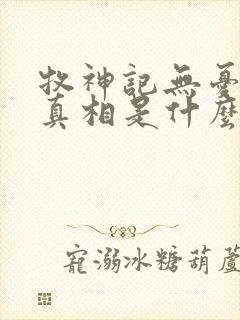 牧神記無憂
真相是什麼
寵溺冰糖葫蘆